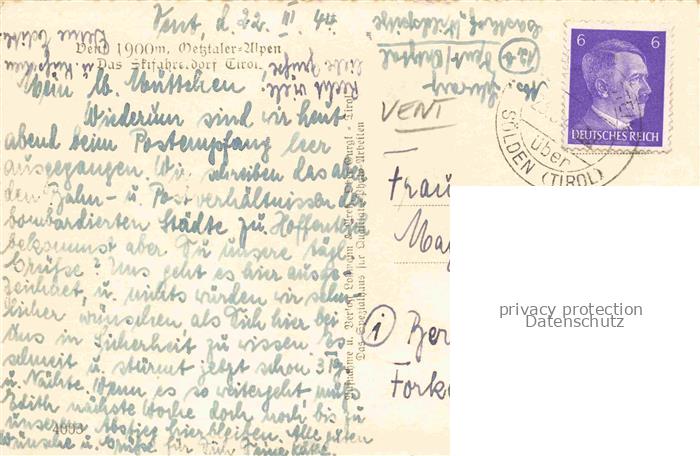 Vent, d. 22. III. 44
Vent 1900m, Oetztaler-Alpen
Das Skifahrerdorf Tirol.
Mein lb. Muttchen!
Wiederum sind wir heut
abend beim Postempfang leer
ausgegangen. Wir schreiben das
den Bahn- u. Postverhältnissen der
bombardierten Städte zu. Hoffentl.
bekommst aber Du unsere tägl.
Grüße? Uns geht es hier ausge-
zeichnet, u. nichts würden wir sehn-
licher wünschen, als Dich hier bei
uns in Sicherheit zu wissen. Es
schneit u. stürmt jetzt schon 3 Tg
u. Nächte. Wenn es so weitergeht muß
Edith nächste Woche doch noch bis zu
unserem Abstieg hierbleiben. Alle guten
Wünsche u. Grüße für Dich Deine Käte.
4093
Recht viele
VENT
6 6
DEUTSCHES REICH
über
SÖLDEN (TIROL)
Frau
May
Ber
Forke
privacy protection
Datenschutz